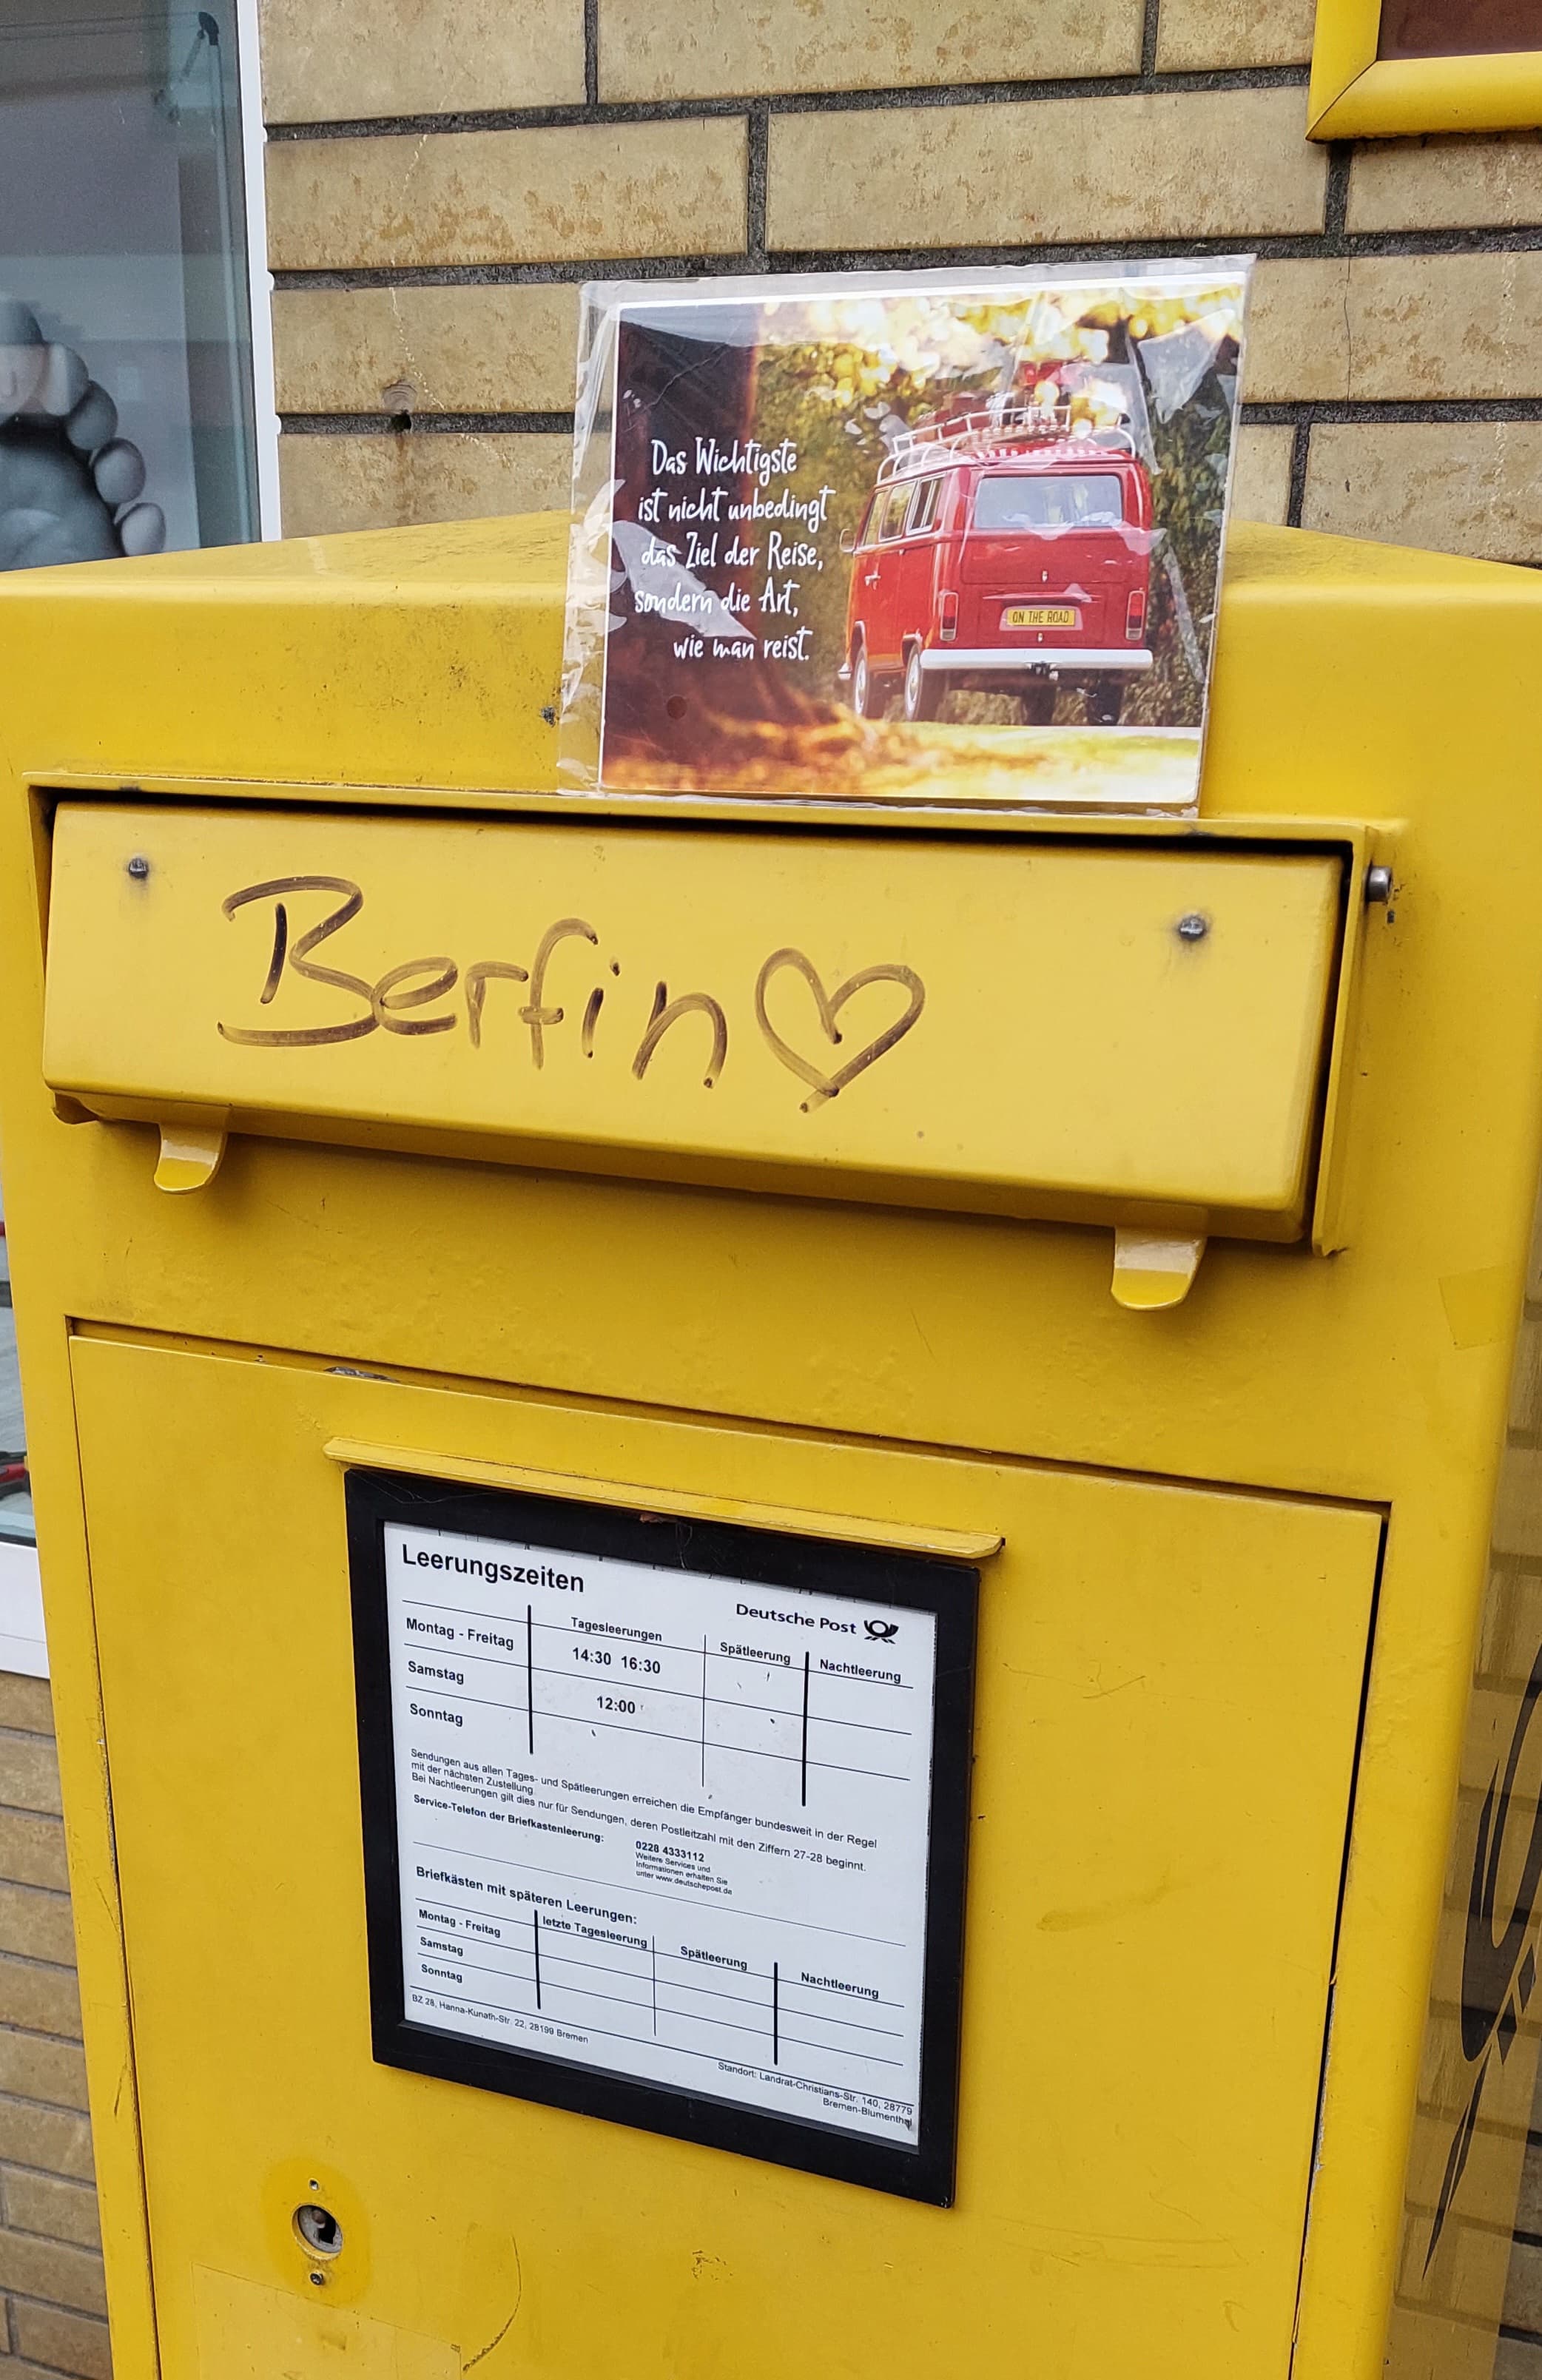 Das Wichtigste
ist nicht unbedingt
das Ziel der Reise,
sondern die Art,
wie man reist.
ON THE ROAD
Berfin
Leerungszeiten
Deutsche Post
Tagesleerungen Spätleerung Nachtleerung
Montag - Freitag 14:30 16:30
Samstag 12:00
Sonntag
Sendungen aus allen Tages- und Spätleerungen erreichen die Empfänger bundesweit in der Regel
mit der nächsten Zustellung.
Bei Nachtleerungen gilt dies nur für Sendungen, deren Postleitzahl mit den Ziffern 27-28 beginnt.
Service-Telefon der Briefkastenleerung: 0228 4333112
Weitere Services und
Informationen erhalten Sie
unter www.deutschepost.de
Briefkästen mit späteren Leerungen:
letzte Tagesleerung Spätleerung Nachtleerung
Montag - Freitag
Samstag
Sonntag
BZ 28, Hanna-Kunath-Str. 22, 28199 Bremen
Standort: Landrat-Christians-Str. 140, 28779
Bremen-Blumenthal